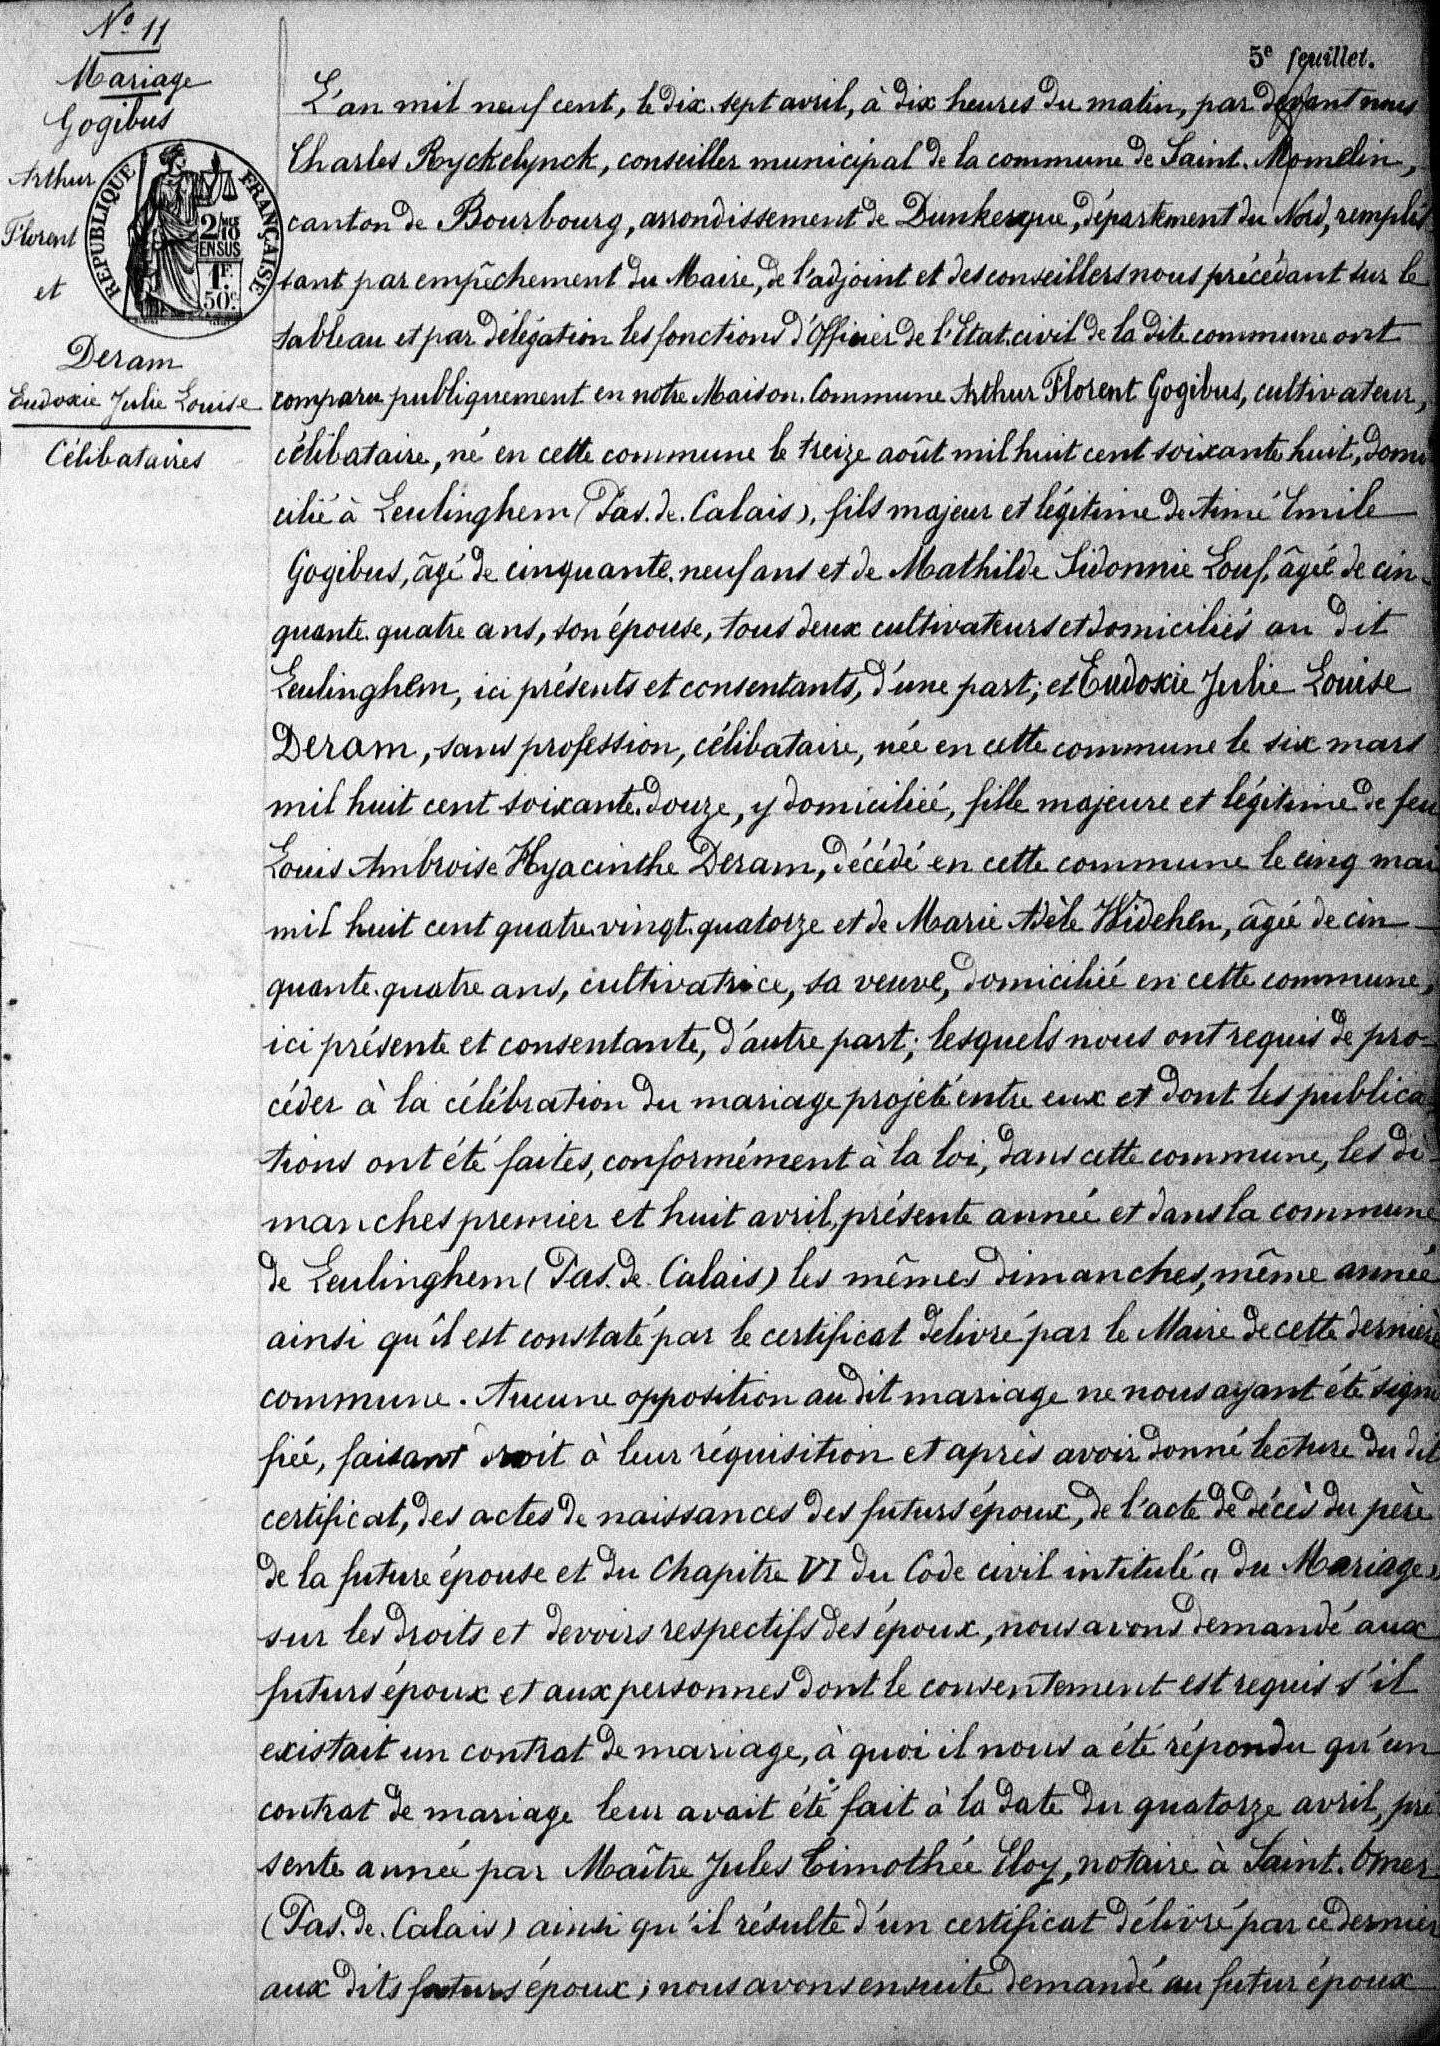 N° 11
Mariage
Gogibus
Arthur
Florent
et
Deram
Eudoxie Julie Louise
Célibataires
RÉPUBLIQUE FRANÇAISE
2/10
EN SUS
1F.
50c.
5e feuillet.
L'an mil neuf cent, le dix-sept avril, à dix heures du matin, par devant nous
Charles Ryckelynck, conseiller municipal de la commune de Saint-Momelin,
canton de Bourbourg, arrondissement de Dunkerque, département du Nord, remplis
sant par empêchement du Maire, de l'adjoint et des conseillers nous précédant sur le
tableau et par délégation les fonctions d'Officier de l'Etat-civil de la dite commune ont
comparu publiquement en notre Maison-Commune Arthur Florent Gogibus, cultivateur,
célibataire, né en cette commune le treize août mil huit cent soixante huit, domi
cilié à Leulinghem (Pas-de-Calais), fils majeur et légitime de Aimé Emile
Gogibus, âgé de cinquante-neuf ans et de Mathilde Sidonnie Louf, âgée de cin-
quante-quatre ans, son épouse, tous deux cultivateurs et domiciliés au dit
Leulinghem, ici présents et consentants, d'une part; et Eudoxie Julie Louise
Deram, sans profession, célibataire, née en cette commune le six mars
mil huit cent soixante-douze, y domiciliée, fille majeure et légitime de feu
Louis Ambroise Hyacinthe Deram, décédé en cette commune le cinq mai
mil huit cent quatre-vingt-quatorze et de Marie Adèle Widehen, âgée de cin-
quante-quatre ans, cultivatrice, sa veuve, domiciliée en cette commune,
ici présente et consentante, d'autre part; lesquels nous ont requis de pro-
céder à la célébration du mariage projeté entre eux et dont les publica-
tions ont été faites, conformément à la loi, dans cette commune, les di-
manches premier et huit avril, présente année et dans la commune
de Leulinghem (Pas-de-Calais) les mêmes dimanches, même année
ainsi qu'il est constaté par le certificat délivré par le Maire de cette dernière
commune. Aucune opposition au dit mariage ne nous ayant été signi
fiée, faisant droit à leur réquisition et après avoir donné lecture du dit
certificat, des actes de naissances des futurs époux, de l'acte de décès du père
de la future épouse et du Chapitre VI du Code civil intitulé „ du Mariage „
sur les droits et devoirs respectifs des époux, nous avons demandé aux
futurs époux et aux personnes dont le consentement est requis s'il
existait un contrat de mariage, à quoi il nous a été répondu qu'un
contrat de mariage leur avait été fait à la date du quatorze avril, pré
sente année par Maître Jules Timothée Eloy, notaire à Saint-Omer
(Pas-de-Calais) ainsi qu'il résulte d'un certificat délivré par ce dernier
aux dits futurs époux; nous avons ensuite demandé au futur époux